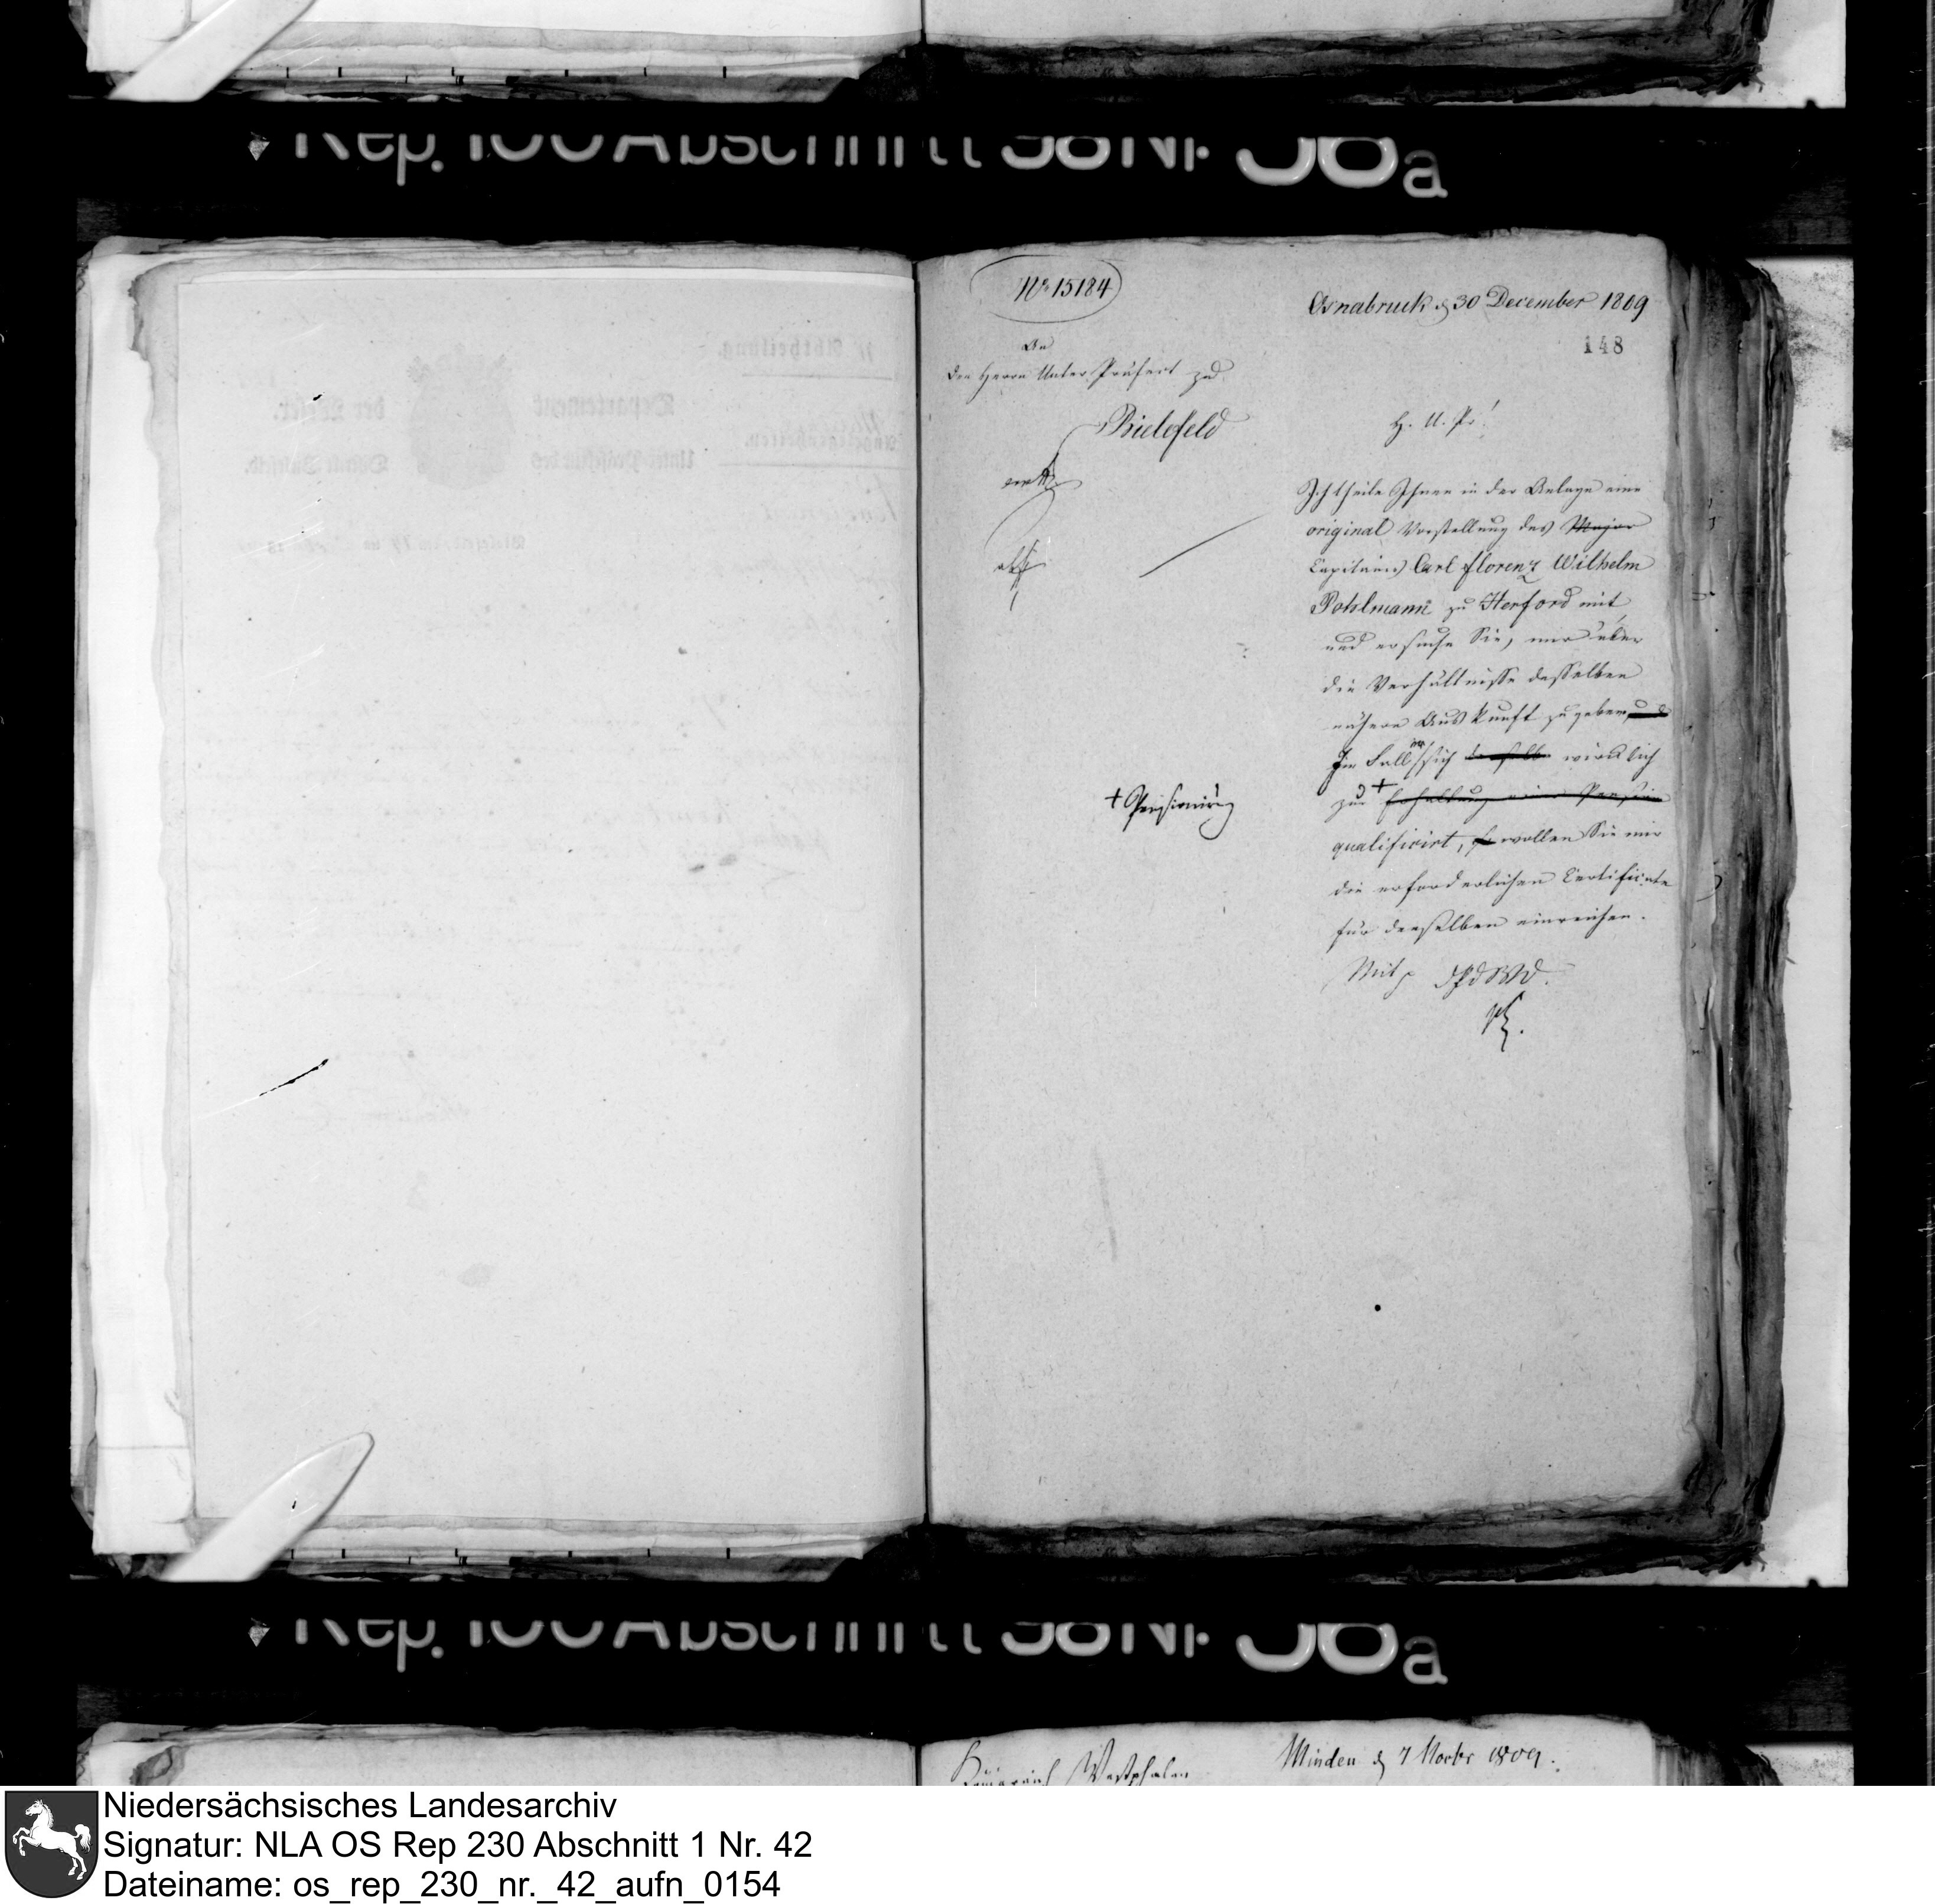 Rep. 100 Abschnitt 58 Nr. 36a
No 15184
Osnabruck d 30 December 1809
148
An
den Herrn Unter Präfect zu
Bielefeld
H. U. Pr!
Ich theile Ihnen in der Anlage eine
original Vorstellung des Major
Capitains Carl Florenz Wilhelm
Pohlmann zu Herford mit,
und ersuche Sie, mir über
die Verhältnisse desselben
nähere Auskunft zu geben und
Im Fall er sich derselbe wirklich
zur + Erhaltung einer Pension
+ Pensionirung
qualificirt, so wollen Sie mir
die erforderlichen Certificate
für denselben einreichen.
Mit
Rep. 100 Abschnitt 58 Nr. 36a
Königreich Westphalen
Minden d 7 Novbr 1809.
Niedersächsisches Landesarchiv
Signatur: NLA OS Rep 230 Abschnitt 1 Nr. 42
Dateiname: os_rep_230_nr._42_aufn_0154